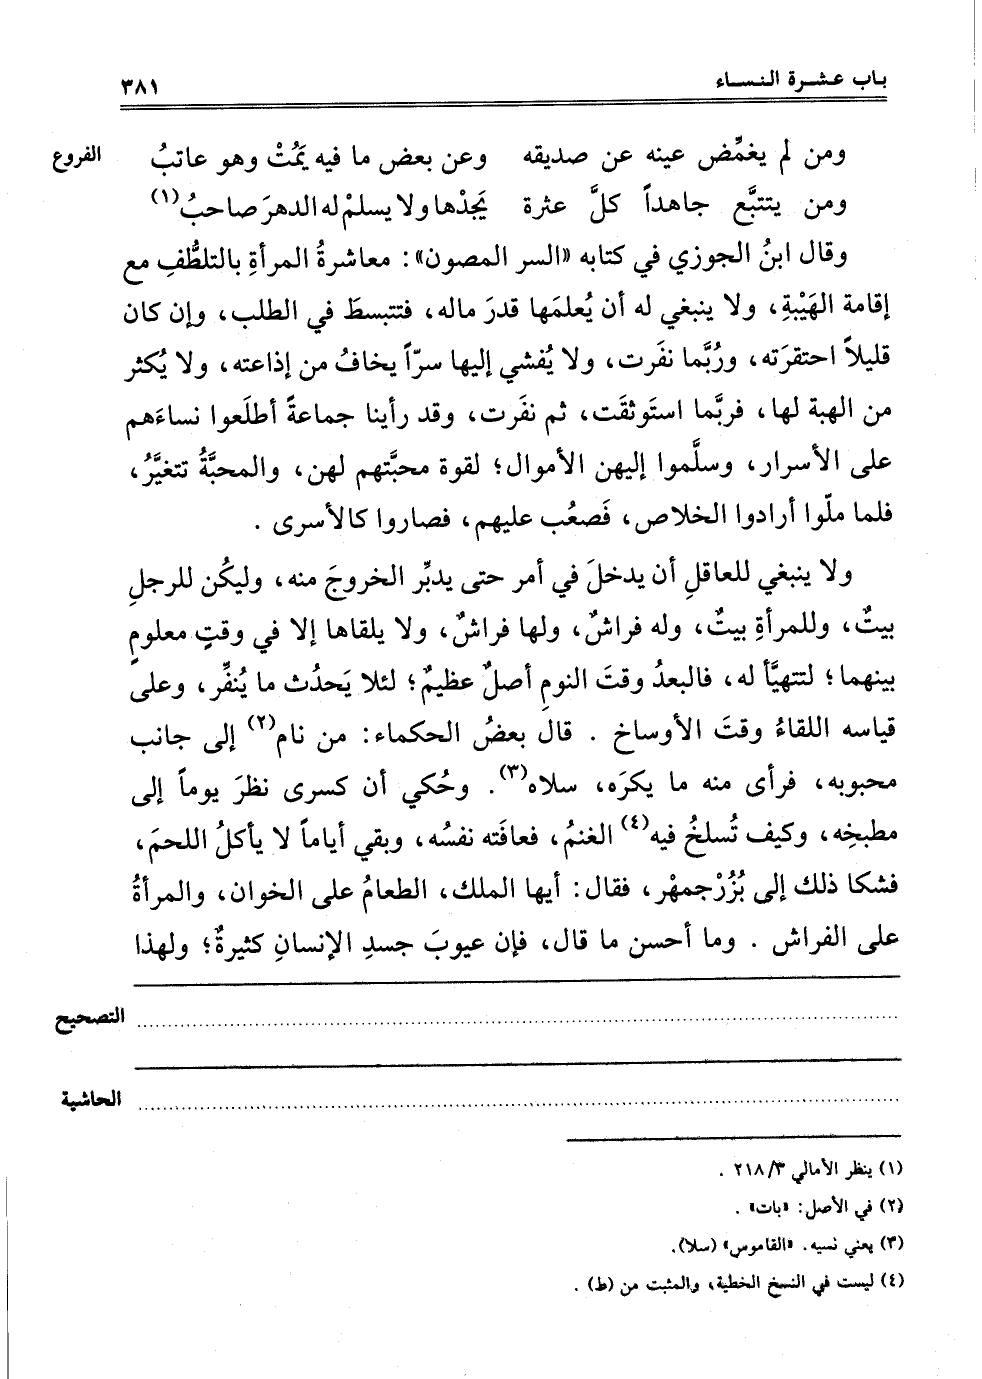 باب عشرة النساء ٣٨١
ومن لم يغمِّض عينه عن صديقه وعن بعض ما فيه يَمُتْ وهو عاتبُ الفروع
ومن يتتبَّع جاهداً كلَّ عثرة يَجدْها ولا يسلمْ له الدهرَ صاحبُ(١)
وقال ابنُ الجوزي في كتابه «السر المصون»: معاشرةُ المرأةِ بالتلطُّفِ مع
إقامة الهَيْبةِ، ولا ينبغي له أن يُعلمَها قدرَ ماله، فتتبسطَ في الطلب، وإن كان
قليلاً احتقرَته، ورُبَّما نفَرت، ولا يُفشي إليها سرّاً يخافُ من إذاعته، ولا يُكثر
من الهبة لها، فربَّما استَوثقَت، ثم نفَرت، وقد رأينا جماعةً أطلَعوا نساءَهم
على الأسرار، وسلَّموا إليهن الأموال؛ لقوة محبَّتهم لهن، والمحبَّةُ تتغيَّرُ،
فلما ملّوا أرادوا الخلاص، فَصعُب عليهم، فصاروا كالأسرى .
ولا ينبغي للعاقلِ أن يدخلَ في أمر حتى يدبِّر الخروجَ منه، وليكُن للرجلِ
بيتٌ، وللمرأةِ بيتٌ، وله فراشٌ، ولها فراشٌ، ولا يلقاها إلا في وقتٍ معلومٍ
بينهما؛ لتتهيَّأ له، فالبعدُ وقتَ النومِ أصلٌ عظيمٌ؛ لئلا يَحدُث ما يُنفِّر، وعلى
قياسه اللقاءُ وقتَ الأوساخ . قال بعضُ الحكماء: من نام(٢) إلى جانب
محبوبه، فرأى منه ما يكرَه، سلاه(٣). وحُكي أن كسرى نظرَ يوماً إلى
مطبخِه، وكيف تُسلخُ فيه(٤) الغنمُ، فعافَته نفسُه، وبقي أياماً لا يأكلُ اللحمَ،
فشكا ذلك إلى بُزُرْجمهْر، فقال: أيها الملك، الطعامُ على الخوان، والمرأةُ
على الفراش . وما أحسن ما قال، فإن عيوبَ جسدِ الإنسانِ كثيرةٌ؛ ولهذا
التصحيح
الحاشية
(١) ينظر الأمالي ٢١٨/٣ .
(٢) في الأصل: «بات» .
(٣) يعني نسيه. «القاموس» (سلا).
(٤) ليست في النسخ الخطية، والمثبت من (ط) .